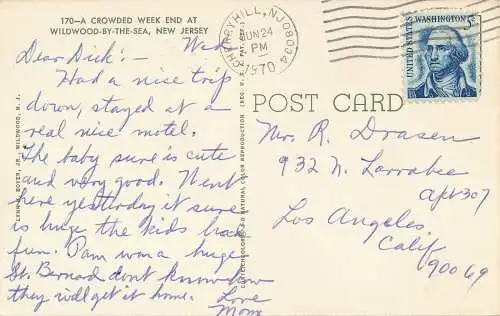 170—A CROWDED WEEK END AT
WILDWOOD-BY-THE-SEA, NEW JERSEY
CHERRY HILL, NJ 08034
JUN 24
PM
1970
UNITED STATES
WASHINGTON 5¢
POST CARD
Wed
Dear Dick:-
Had a nice trip
down, stayed at a
real nice motel.
The baby sure is cute
and very good. Went
here yesterday it sure
is huge the kids had
fun. Pam won a huge
St. Bernard dont know how
they will get it home.
Love
Mom
Mr. R. Drasen
932 N. Larrabee
Apt 307
Los Angeles,
Calif
90069
BOYER, JR., WILDWOOD, N. J.
NATURAL COLOR REPRODUCTION